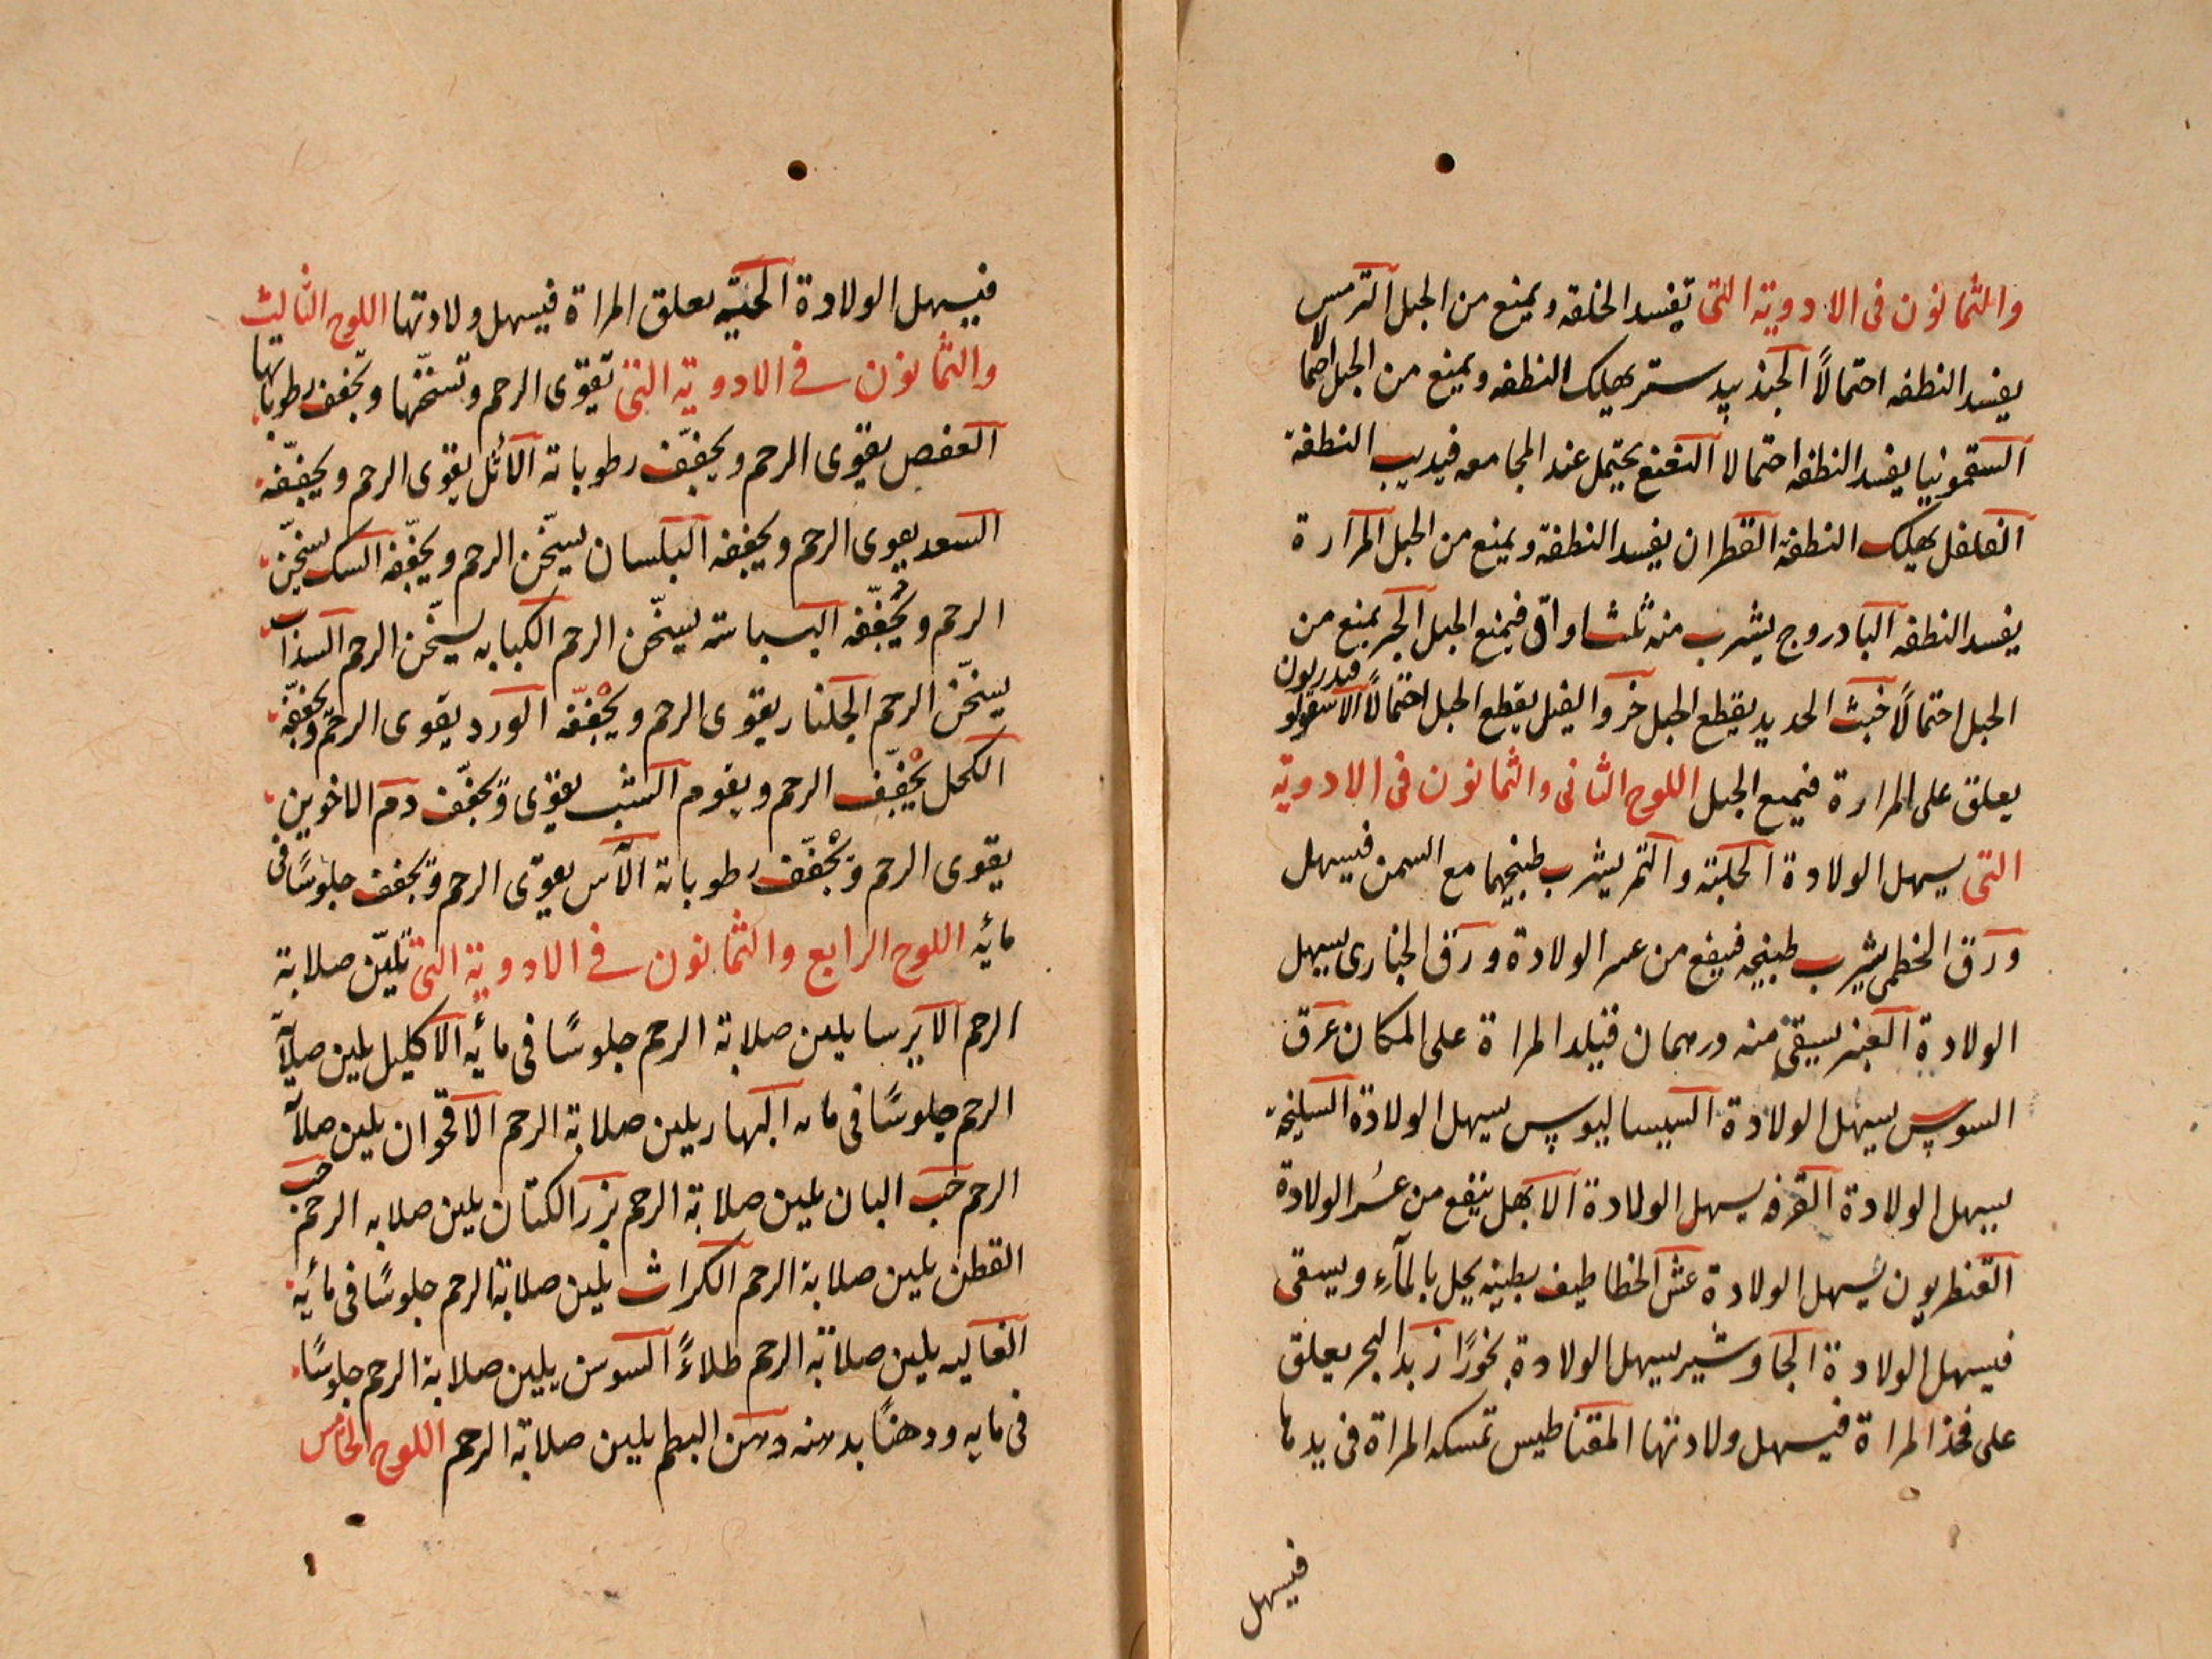 والثمانون فى الادوية التى تفسد الخلقه ويمنع من الحبل الترمس
يفسد النطفه احتمالاً الجندبيدستر يهلك النطفه ويمنع من الحبل احتمالا
السقمونيا يفسد النطفه احتمالا النعنع يحتمل عند المجامعه فيذيب النطفة
الفلفل يهلك النطفة القطران يفسد النطفة ويمنع من الحبل المرارة
يفسد النطفه البادروج يشرب منه ثلث اواقى فيمنع الحبل الحجر يمنع من
الحبل احتمالاً خبث الحديد يقطع الحبل خرو الفيل يقطع الحبل احتمالاً الاسقولوفندريون
يعلق على المرارة فيمنع الحبل اللوح الثانى والثمانون فى الادوية
التى يسهل الولادة الحلبته والتمر يشرب طبيخهما مع السمن فيسهل
ورق الخطمى يشرب طبيخه فينفع من عسر الولادة ورق الخبازى يسهل
الولادة العنبر يسقى منه درهمان فتيلد المراة على المكان عرق
السوس يسهل الولادة السيساليوس يسهل الولادة السليخة
يسهل الولادة القرفه يسهل الولادة الابهل ينفع من عسُر الولادة
القنطريون يسهل الولادة عش الخطاطيف بطينه يحل بالمآء ويسقى
فيسهل الولادة الجاوشير يسهل الولادة بخورًا زبد البحر يعلق
على فخذ المراة فيسهل ولادتها المقناطيس تمسكه المراة فى يدها
فيسهل
فيسهل الولادة الحيّه يعلق المراة فيسهل ولادتها اللوح الثالث
والثمانون فى الادوية التى تقوّى الرحم وتسخّنها وتجفف رطوباتها
العفص يقوّى الرحم ويجفّف رطوباته الاثل يقوى الرحم ويجفّفه
السعد يقوى الرحم ويجففه البلسان يسّخن الرحم ويجفّفه السك يسخّن
الرحم ويُجفّفه البسباسته يسخّن الرحم الكبابه يسخّن الرحم السذاب
يسخّن الرحم الجلنار يقوى الرحم ويجفّفه الورد يقوى الرحم ويجففّه
الكحل يجفّف الرحم ويقوم الشب يقوّى ويجفّف دم الاخوين
يقوى الرحم ويجفّف رطوباته الآس يقوّى الرحم ويجفف جلوسًا فى
مائه اللوح الرابع والثمانون فى الادوية التى تليّن صلابة
الرحم الايرسا يلين صلابة الرحم جلوسًا فى مائه الاكليل يلين صلابة
الرحم جلوسًا فى مائه البهار يلين صلابة الرحم الاقحوان يلين صلابة
الرحم حب البان يلين صلابة الرحم بزر الكتان يلين صلابه الرحم حب
القطن يلين صلابة الرحم الكراث يلين صلابة الرحم جلوسًا فى مائه
الغاليه يلين صلابة الرحم طلاءً السوسن يلين صلابة الرحم جلوسًا
فى مايه ودهنًا بدهنه دهن البطم يلين صلابة الرحم اللوح الخامس